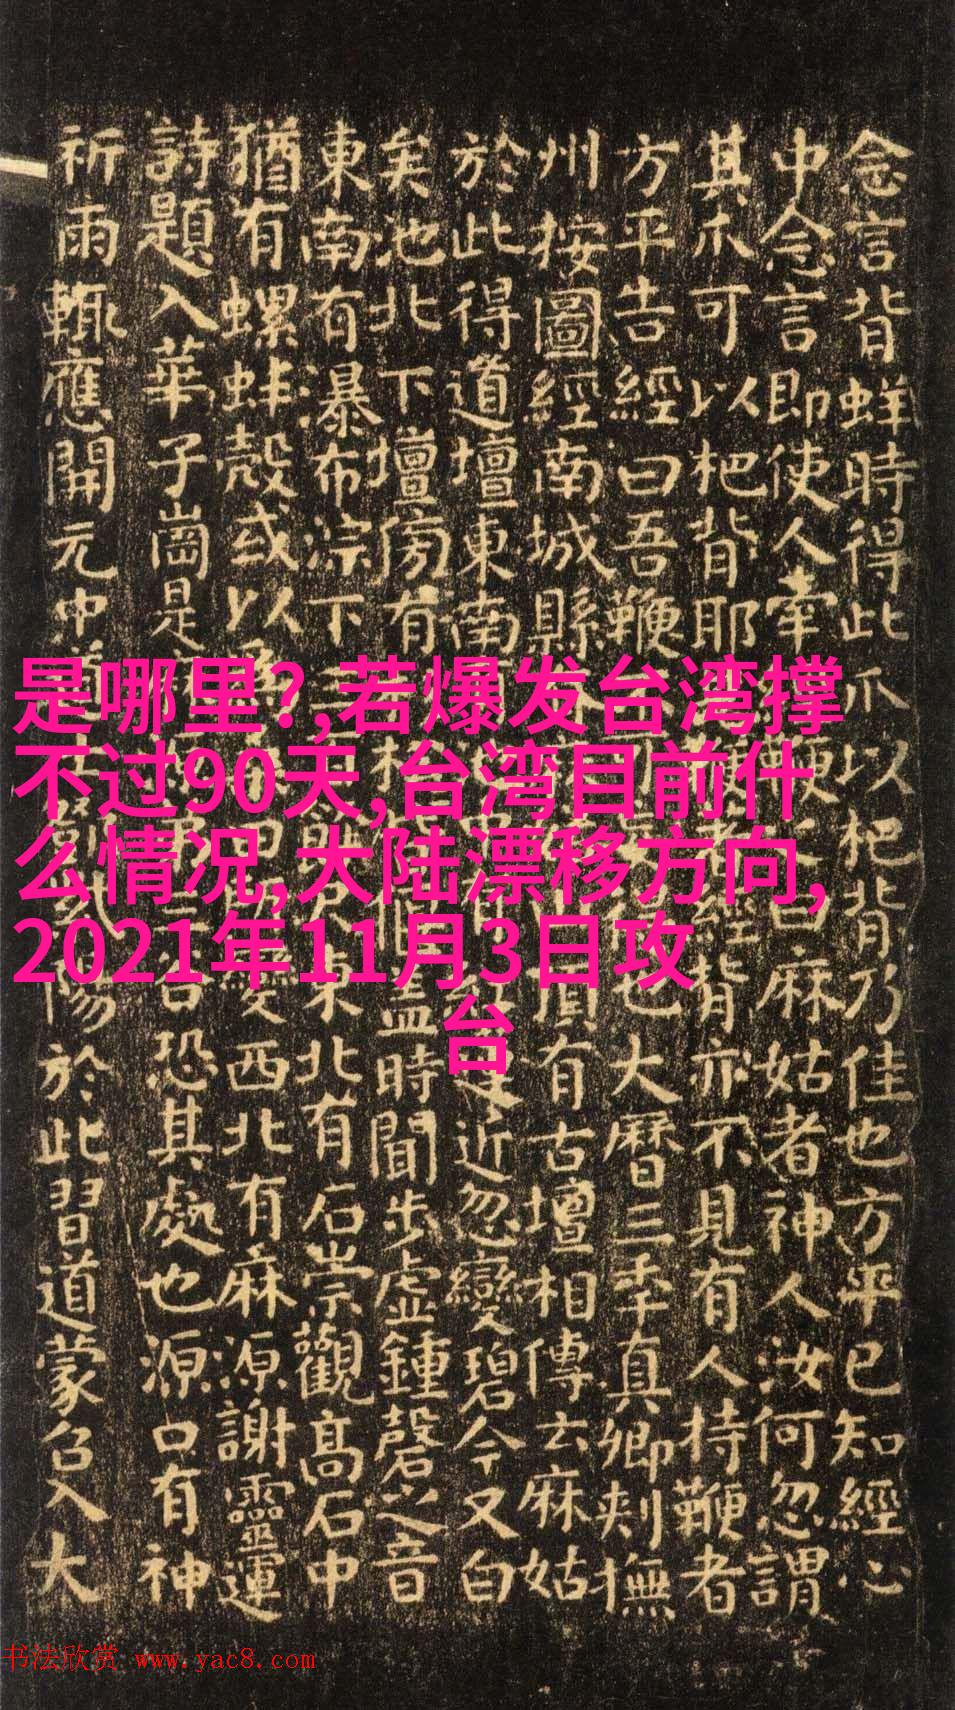 念言背蛘時得此爪以杷背乃佳也方平已知經心
中念言即使人牽鞭之曰麻姑者神人汝何忽謂
其爪可以杷背耶見鞭著經背亦不見有人持鞭者
方平告經曰吾鞭也大曆三年真卿刺撫
州按圖經南城縣頂有古壇相傳云麻姑
於此得道壇東南近忽變碧今又白
矣池北下壇傍有松皆偃蓋時聞步虛鍾磬之音
東南有瀑布淙下三東北有石崇觀高石中
猶有螺蚌殼或以為田變西北有麻源謝靈運
詩題入華子崗是谷恐其處也源口有神
祈雨輒應開元中道陽於此習道蒙召入大
是哪里?,若爆发台湾撑
不过90天,台湾目前什
么情况,大陆漂移方向,
2021年11月3日攻
台
书法欣赏 www.yac8.com